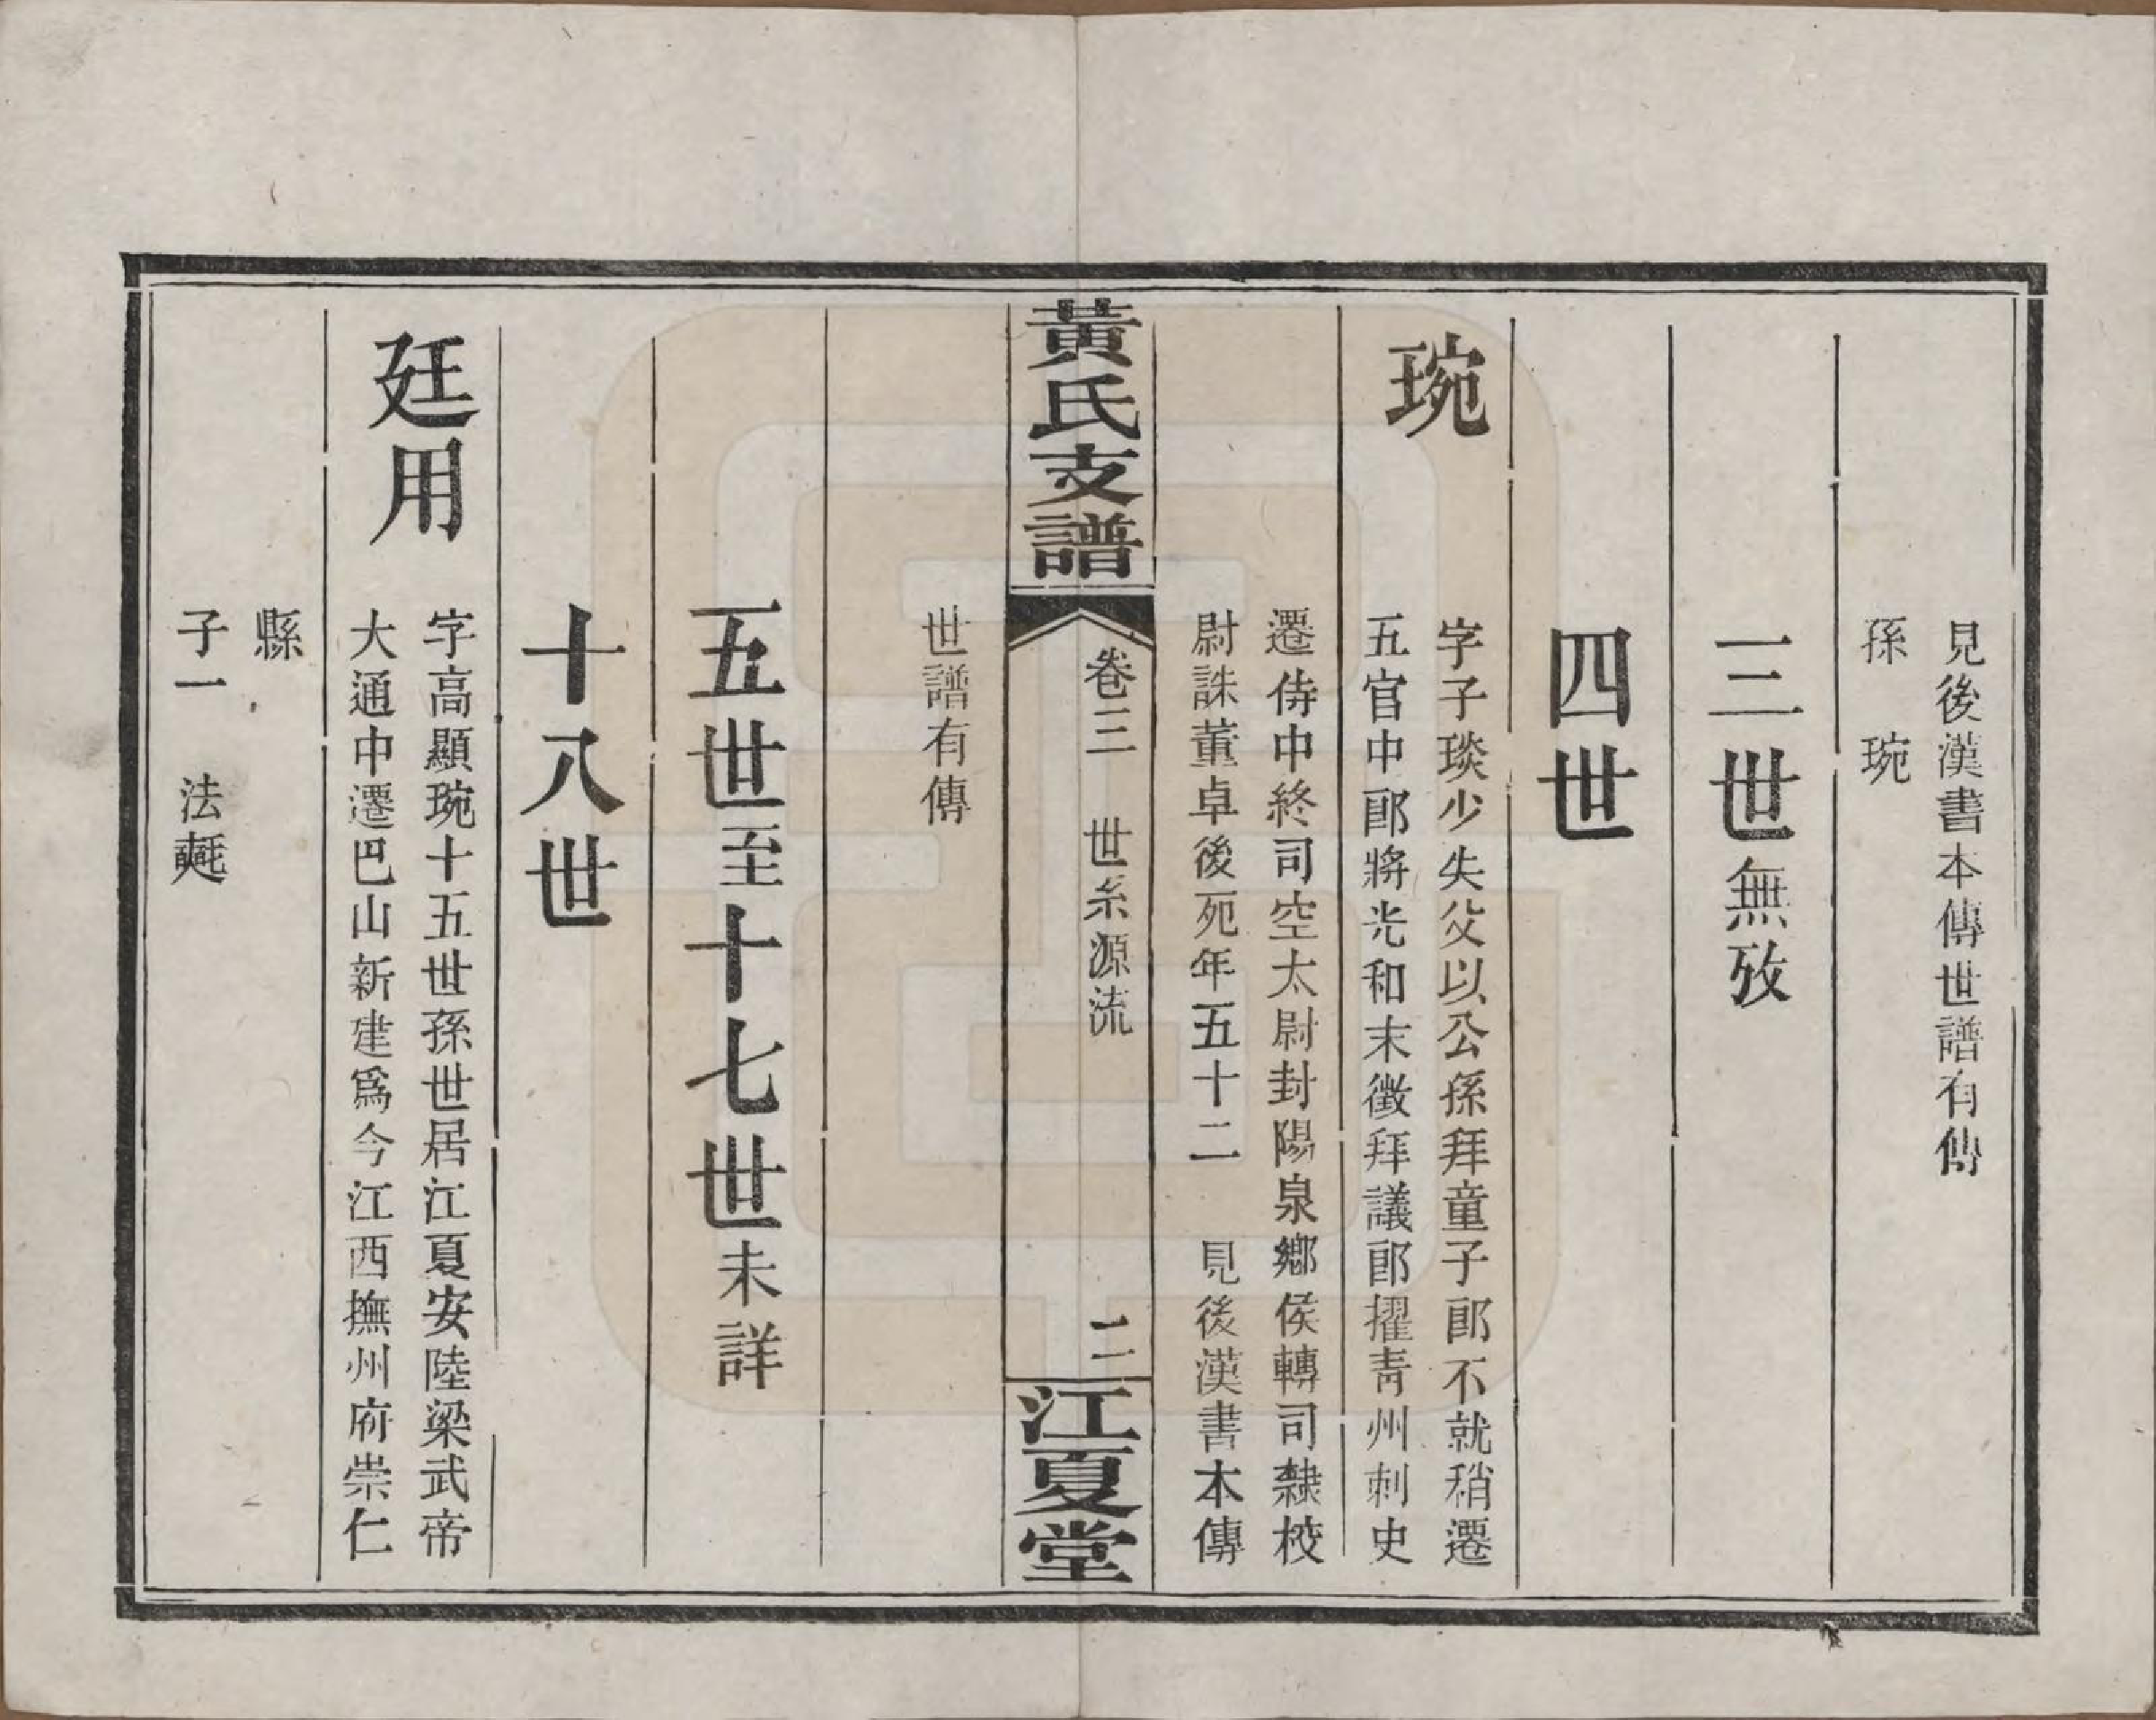 見後漢書本傳世譜有傳
孫　琬
三世無攷
四世
琬
字子琰少失父以公孫拜童子郎不就稍遷
五官中郎將光和末徵拜議郎擢青州刺史
遷侍中終司空太尉封陽泉鄉侯轉司隸校
尉誅董卓後死年五十二　見後漢書本傳
世譜有傳
黃氏支譜
卷三　世系源流
二
江夏堂
五世至十七世未詳
十八世
廷用
字高顯琬十五世孫世居江夏安陸梁武帝
大通中遷巴山新建爲今江西撫州府崇仁
縣
子一　法